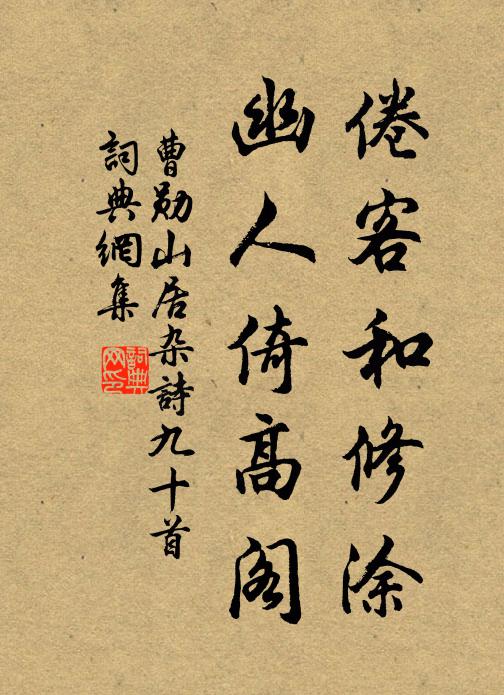 倦客和修涂
幽人倚高阁
曹勋山居杂詩九十首
詞典網集
詞典网印